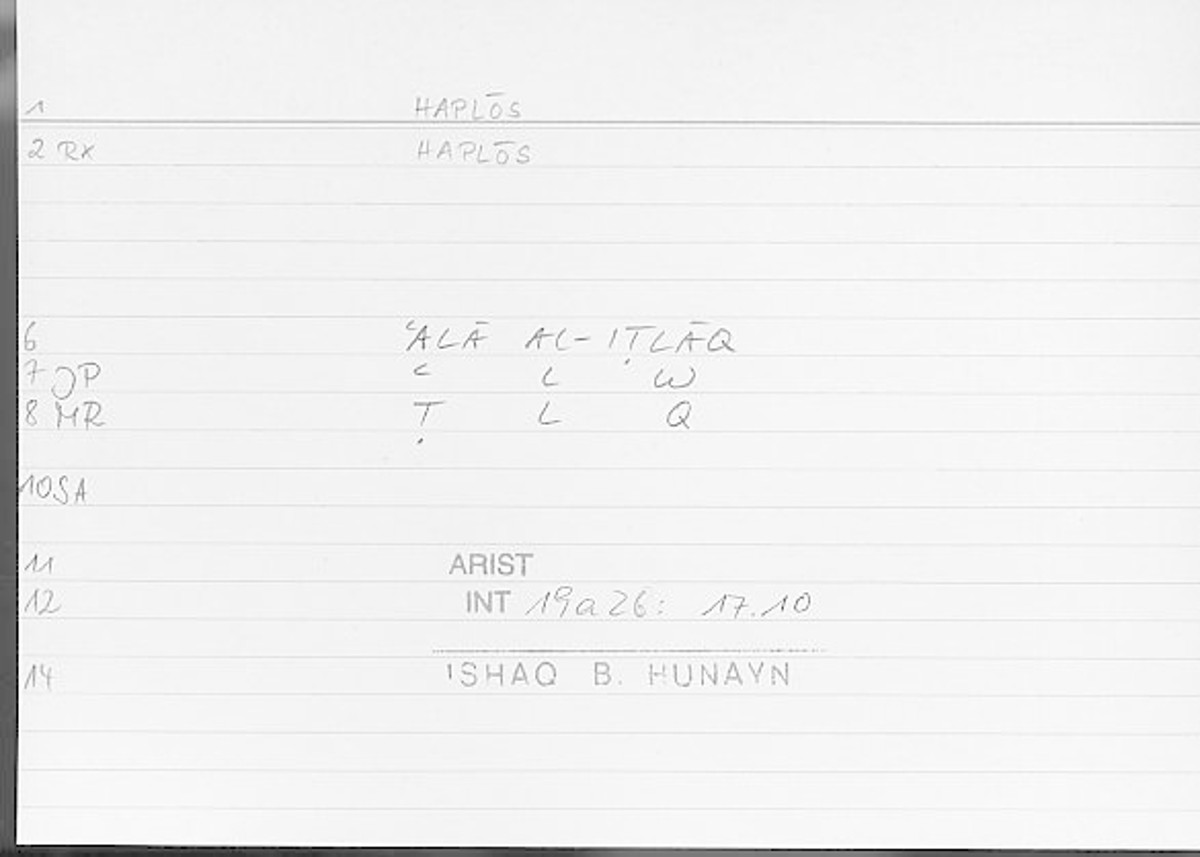 1 HAPLŌS
2 RX HAPLŌS
6 ʿALĀ AL-IṬLĀQ
7 JP ʿ L W
8 MR Ṭ L Q
10 SA
11 ARIST
12 INT 19a26: 17.10
14 ISHAQ B. HUNAYN